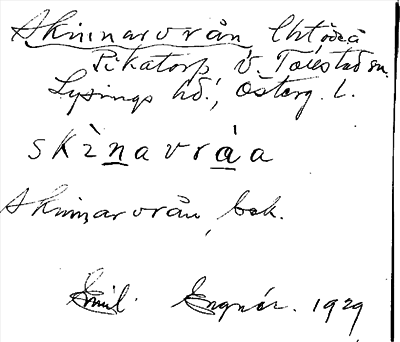 Skinnarvrån
Pikatorp V. Tollstad sn.
Lysings hd., Österg. l.
skìnavráa
Skinnarvrån, bok.
Emil Engnér. 1929